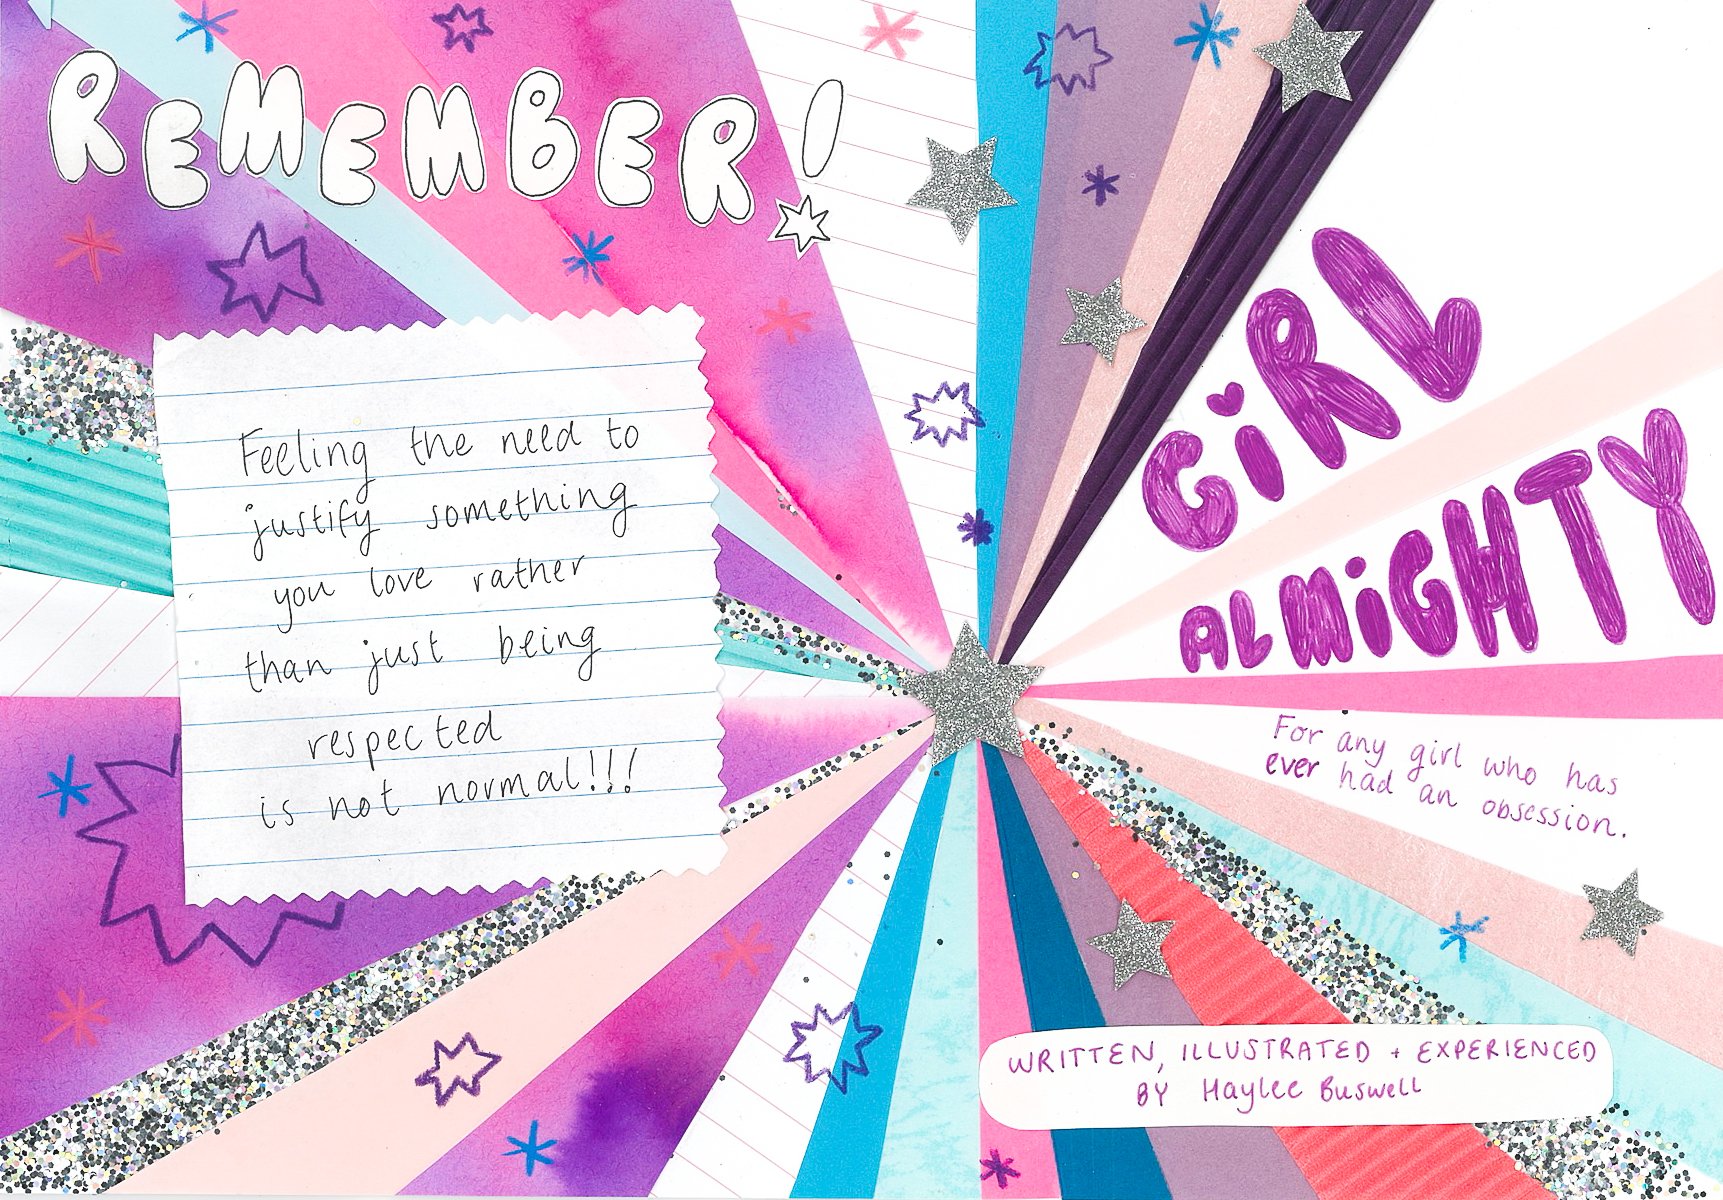 REMEMBER!
Feeling the need to
justify something
you love rather
than just being
respected
is not normal!!!
GiRL
ALMiGHTY
For any girl who has
ever had an obsession.
WRITTEN, ILLUSTRATED + EXPERIENCED
BY Haylee Buswell